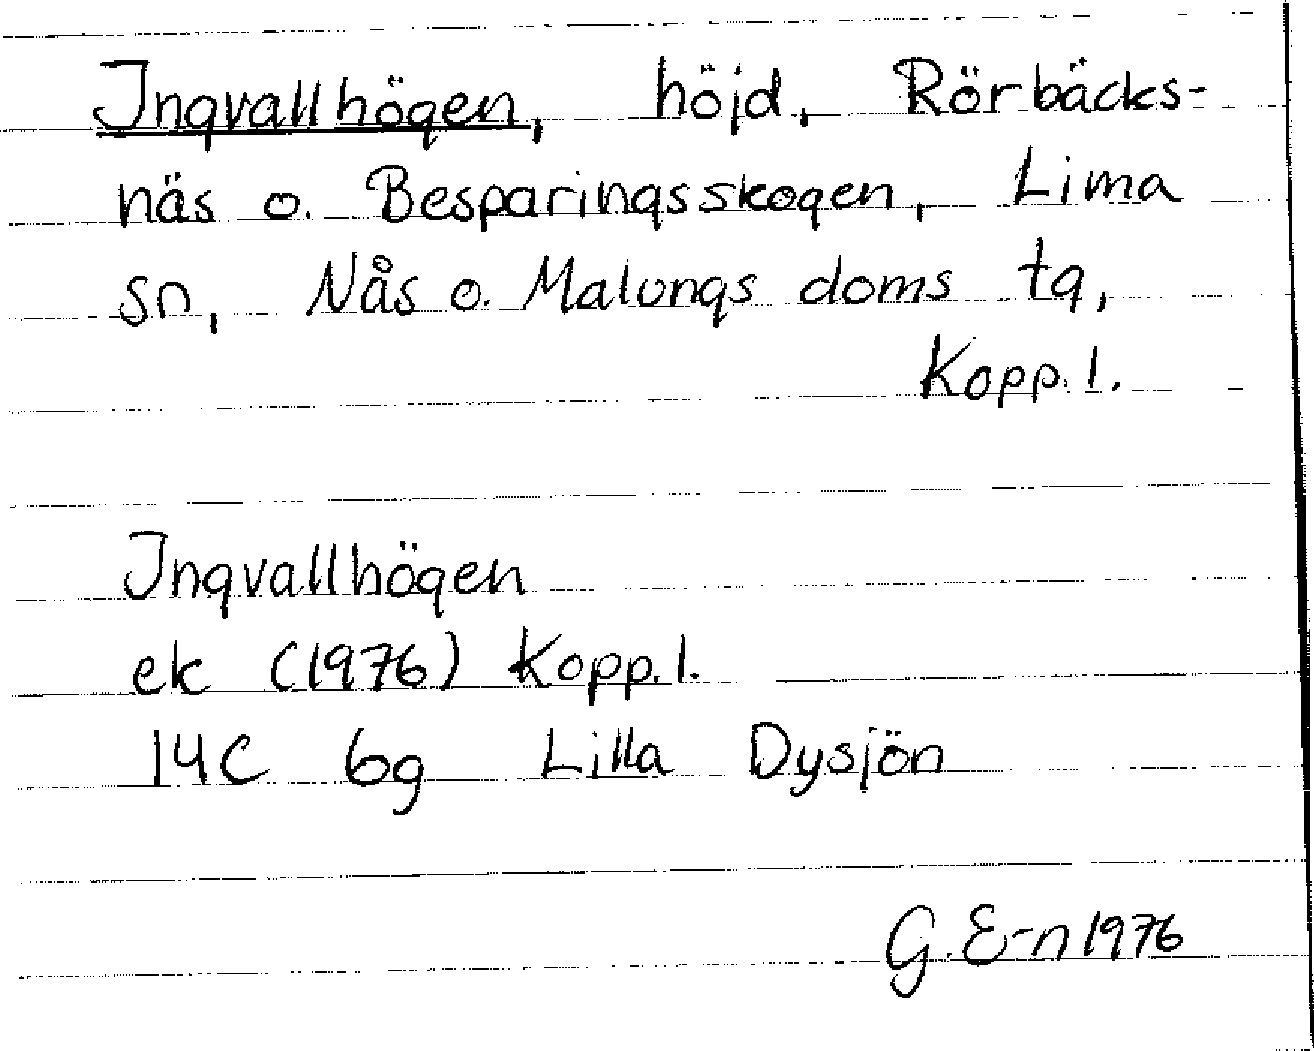 Ingvallhögen, höjd, Rörbäcks-
näs o. Besparingsskogen, Lima
sn, Nås o. Malungs doms tg,
Kopp. l.
Ingvallhögen
ek (1976) Kopp. l.
14C 6g Lilla Dysjön
G. E-n 1976